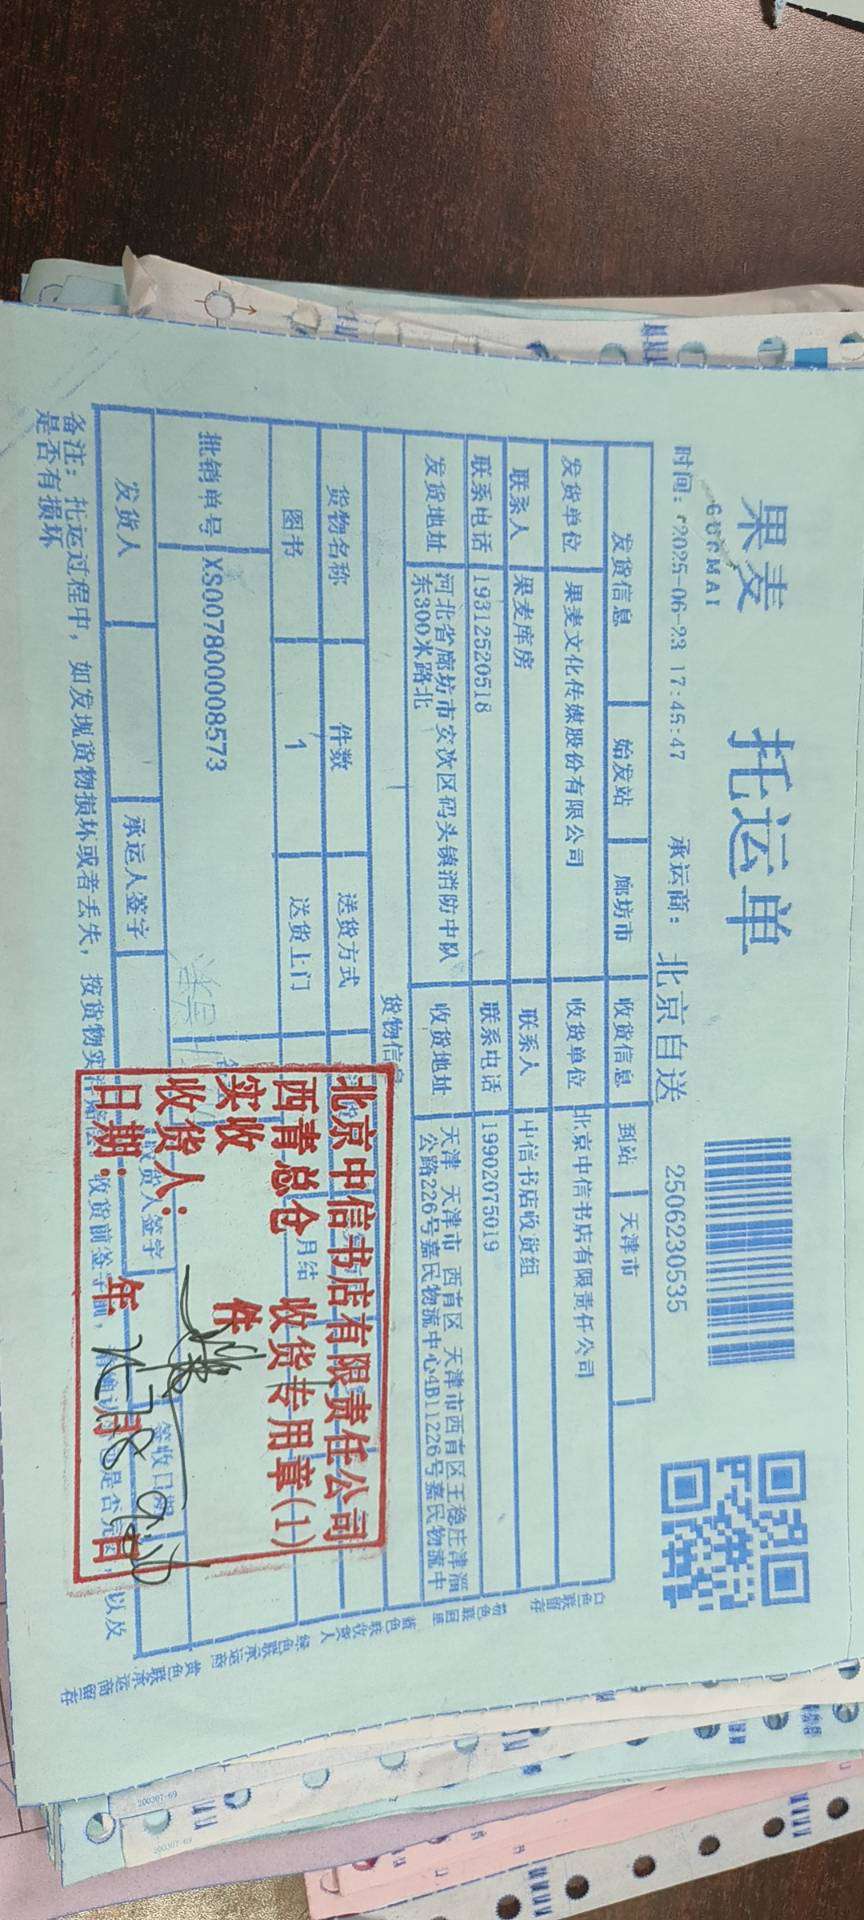 果麦
GUOMAI
托运单
时间: 2025-06-23 17:45:47 承运商: 北京自送 2506230535
发货信息 始发站 廊坊市 收货信息 到站 天津市
发货单位 果麦文化传媒股份有限公司 收货单位 北京中信书店有限责任公司
联系人 果麦库房 联系人 中信书店收货组
联系电话 19312520518 联系电话 19902075019
发货地址 河北省廊坊市安次区码头镇消防中队东300米路北 收货地址 天津 天津市 西青区 天津市西青区王稳庄津淄公路226号嘉民物流中心4B11226号嘉民物流中
货物信息
货物名称 件数 送货方式
图书 1 送货上门 月结
批销单号 XS007800008573
发货人 承运人签字 收货人签字 签收日期
备注: 托运过程中, 如发现货物损坏或者丢失, 按货物实
是否有损坏
以及
北京中信书店有限责任公司
西青总仓 收货专用章(1)
实收 件
收货人:
日期: 年 月 日
白色联留存
粉色联回单
蓝色联收货人
绿色联承运商
黄色联承运商留存
200307-69
200307-69